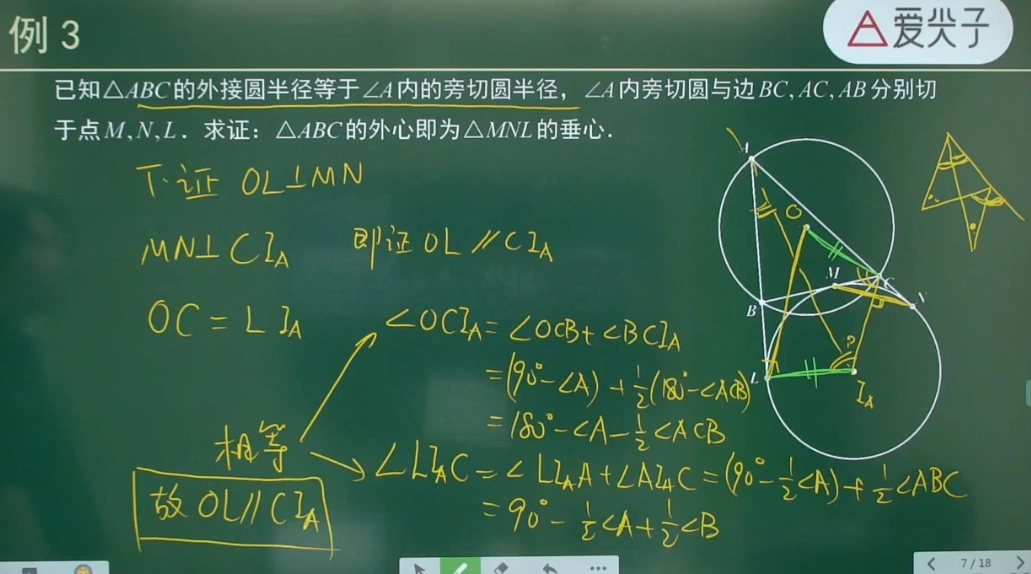 例 3
爱尖子
已知△ABC的外接圆半径等于∠A内的旁切圆半径，∠A内旁切圆与边BC, AC, AB分别切
于点M, N, L．求证：△ABC的外心即为△MNL的垂心．
下证 OL⊥MN
MN⊥CI_A 即证 OL∥CI_A
OC = LI_A
∠OCI_A = ∠OCB + ∠BCI_A
= (90° - ∠A) + 1/2(180° - ∠ACB)
= 180° - ∠A - 1/2∠ACB
相等
∠LI_AC = ∠LI_AA + ∠AI_AC = (90° - 1/2∠A) + 1/2∠ABC
= 90° - 1/2∠A + 1/2∠B
故 OL∥CI_A
A
O
M
C
N
B
L
I_A
7 / 18